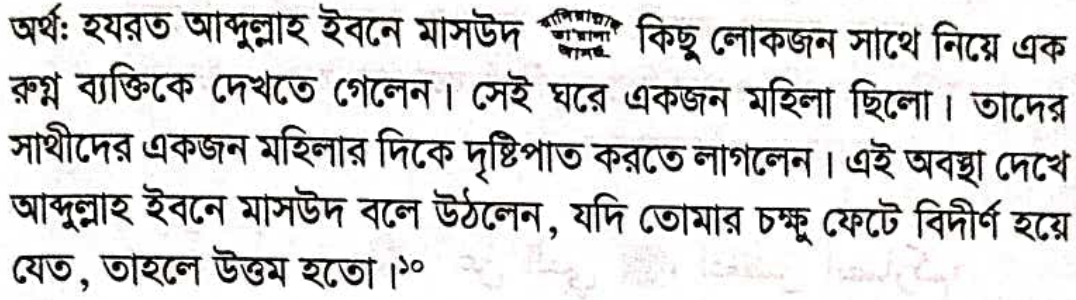 অর্থ: হযরত আব্দুল্লাহ ইবনে মাসউদ রাদিয়াল্লাহু তা'আলা আনহু কিছু লোকজন সাথে নিয়ে এক
রুগ্ন ব্যক্তিকে দেখতে গেলেন। সেই ঘরে একজন মহিলা ছিলো। তাদের
সাথীদের একজন মহিলার দিকে দৃষ্টিপাত করতে লাগলেন। এই অবস্থা দেখে
আব্দুল্লাহ ইবনে মাসউদ বলে উঠলেন, যদি তোমার চক্ষু ফেটে বিদীর্ণ হয়ে
যেত, তাহলে উত্তম হতো।১০